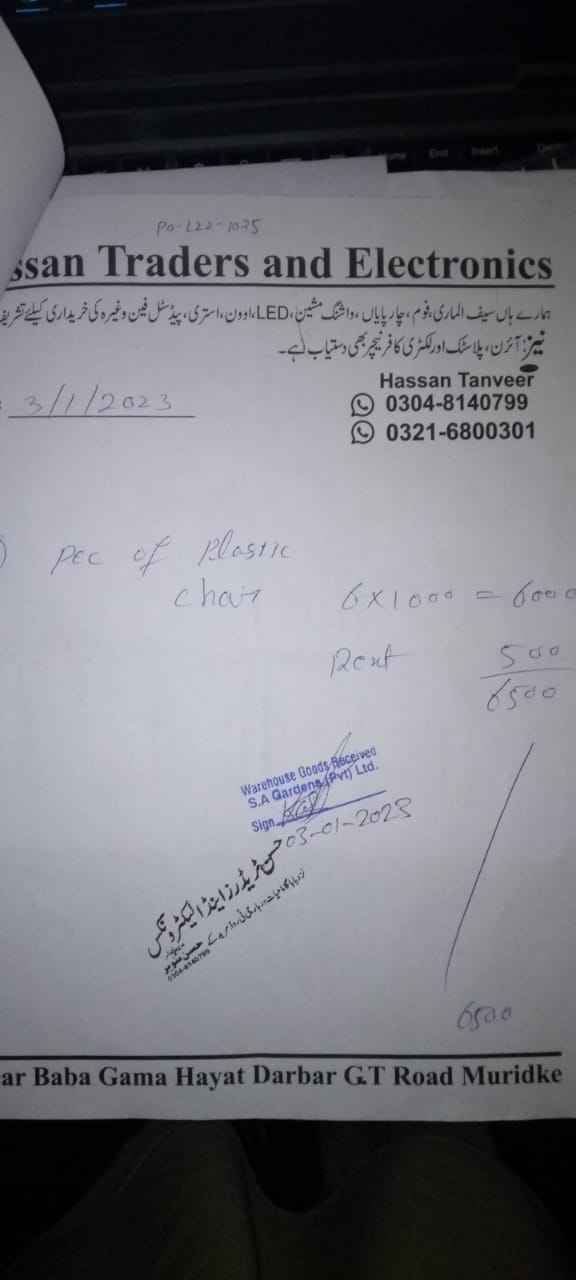 PO-L22-1075
ssan Traders and Electronics
ہمارے ہاں سیف الماری، فوم، چارپایاں، واشنگ مشین، LED، اوون، استری، پیڈسٹل فین وغیرہ کی خریداری کیلئے تشریف
نیز: آئرن، پلاسٹک اور لکڑی کا فرنیچر بھی دستیاب ہے۔
Hassan Tanveer
0304-8140799
0321-6800301
3/1/2023
) Pec of Plastic
chair 6x1000 = 6000
Rent 500
6500
Warehouse Goods Received
S.A Gardens (Pvt) Ltd.
Sign
03-01-2023
حسن ٹریڈرز اینڈ الیکٹرونکس
حسن تنویر
0304-8140799
6500
ar Baba Gama Hayat Darbar G.T Road Muridke
Home End Insert